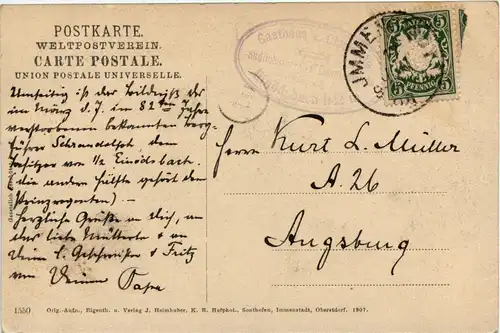 POSTKARTE.
WELTPOSTVEREIN.
CARTE POSTALE.
UNION POSTALE UNIVERSELLE.
Umseitig ist das Bildniß des
im März d. J. im 82ten Jahre
verstorbenen bekannten Berg-
führer Schraudolph, dem
Besitzer von 1/2 Einödsbach.
(die andere Hälfte gehört dem
Prinzregenten) –
Herzliche Grüße an Dich, an
das liebe Mütterle & an
Deine l. Geschwister & Fritz
von Deinem Papa
Herrn Kurt L. Müller
A. 26
Augsburg
IMMEN
BAYERN
5 PFENNIG 5
Gasthaus
Gesetzlich
1550 Orig.-Aufn., Eigenth. u. Verlag J. Heimhuber, K. B. Hofphot., Sonthofen, Immenstadt, Oberstdorf. 1907.